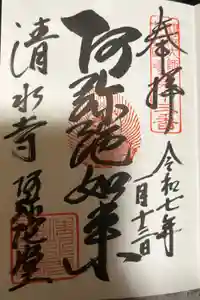 奉拝
令和七年
月十三日
阿弥陀如来
清水寺
阿弥陀堂